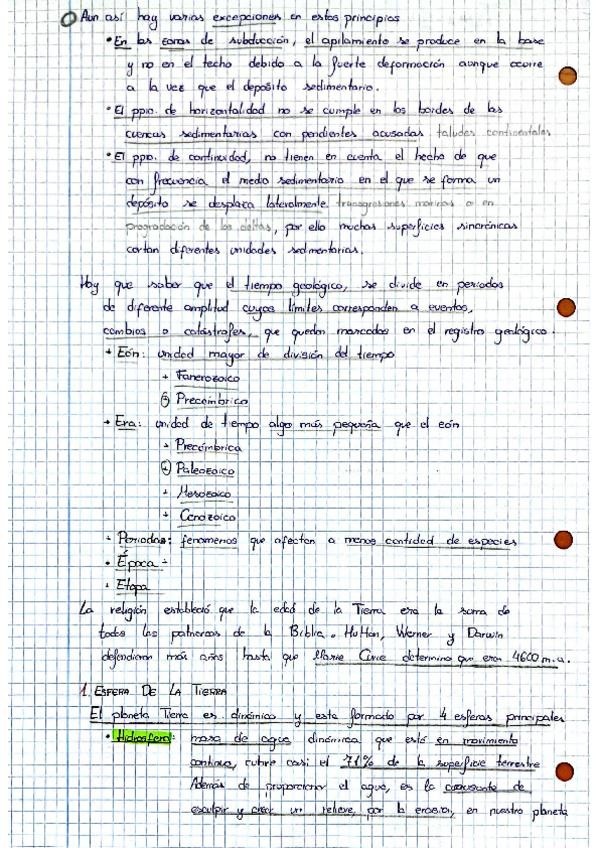 Aun así hay varias excepciones en estos principios
• En las zonas de subducción, el apilamiento se produce en la base
y no en el techo debido a la fuerte deformación aunque ocurre
a la vez que el depósito sedimentario.
• El ppio. de horizontalidad no se cumple en los bordes de las
cuencas sedimentarias con pendientes acusadas taludes continentales
• El ppio. de continuidad, no tienen en cuenta el hecho de que
con frecuencia el medio sedimentario en el que se forma un
depósito se desplaza lateralmente transgresiones marinas o en
progradación de los deltas, por ello muchas superficies sincrónicas
cortan diferentes unidades sedimentarias.
Hay que saber que el tiempo geológico, se divide en periodos
de diferente amplitud cuyos límites corresponden a eventos,
cambios o catástrofes, que quedan marcados en el registro geológico.
+ Eón: unidad mayor de división del tiempo
+ Fanerozoico
Precámbrico
+ Era: unidad de tiempo algo más pequeña que el eón
+ Precámbrica
Paleozoico
+ Mesozoico
+ Cenozoico
+ Periodos: fenomenos que afectan a menos cantidad de especies
• Época -
• Etapa
La religión estableció que la edad de la Tierra era la suma de
todos los patriarcas de la Biblia. Hutton, Werner y Darwin
defendieron más años hasta que Marie Curie determino que eran 4600 m.a.
1. ESFERA DE LA TIERRA
El planeta Tierra es dinámico y esta formado por 4 esferas principales
• Hidrosfera: masa de agua dinámica que está en movimiento
continuo, cubre casi el 71% de la superficie terrestre
Además de proporcionar el agua, es la causante de
esculpir y crear un relieve, por la erosión, en nuestro planeta